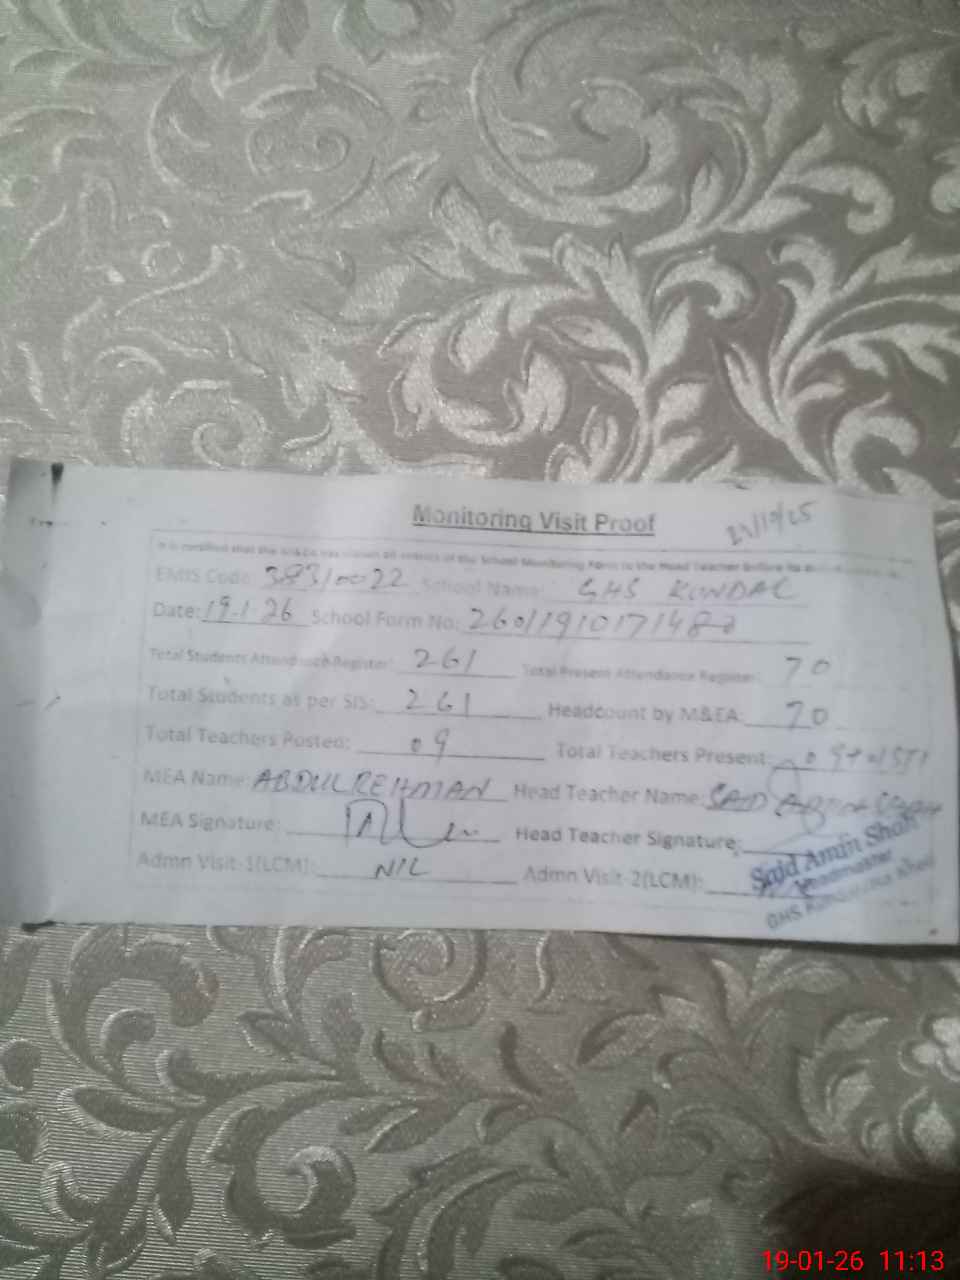 Monitoring Visit Proof
It is certified that the M&EA has shown all entries of the School Monitoring Form to the Head Teacher before
EMIS Code: 38310022 School Name: GHS KUNDAL
Date: 19-1-26 School Form No: 260119101714
Total Students Attendance Register: 261 Total Present Attendance Register: 70
Total Students as per SIS: 261 Headcount by M&EA: 70
Total Teachers Posted: 09 Total Teachers Present: 09+01STI
MEA Name: ABDUL REHMAN Head Teacher Name: SAID AMIN SHAH
MEA Signature: Head Teacher Signature:
Said Amin Shah
Headmaster
Admn Visit-1(LCM): NIL Admn Visit-2(LCM):
GHS
19-01-26 11:13